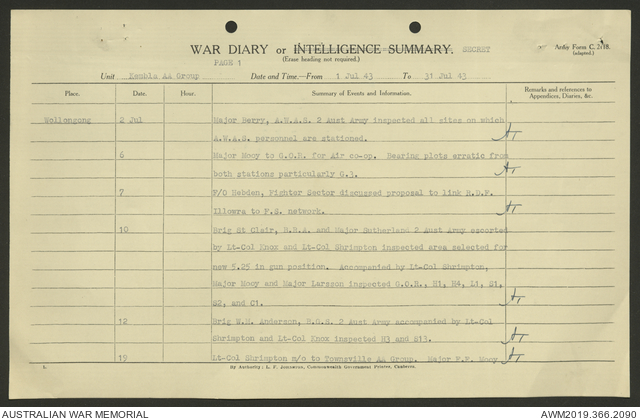 WAR DIARY or INTELLIGENCE SUMMARY. SECRET
Army Form C. 2118.
(Erase heading not required.)
(adapted.)
PAGE 1
Unit Kembla AA Group Date and Time.—From 1 Jul 43 To 31 Jul 43
Place. Date. Hour. Summary of Events and Information. Remarks and references to Appendices, Diaries, &c.
Wollongong 2 Jul Major Berry, A.W.A.S. 2 Aust Army inspected all sites on which
A.W.A.S. personnel are stationed.
6 Major Mooy to G.O.R. for Air co-op. Bearing plots erratic from
both stations particularly G.3.
7 F/O Hebden, Fighter Sector discussed proposal to link R.D.F.
Illowra to F.S. network.
10 Brig St Clair, B.R.A. and Major Sutherland 2 Aust Army escorted
by Lt-Col Knox and Lt-Col Shrimpton inspected area selected for
new 5.25 in gun position. Accompanied by Lt-Col Shrimpton,
Major Mooy and Major Larsson inspected G.O.R., H1, H4, L1, S1,
S2, and C1.
12 Brig W.M. Anderson, B.G.S. 2 Aust Army accompanied by Lt-Col
Shrimpton and Lt-Col Knox inspected H3 and S13.
19 Lt-Col Shrimpton m/o to Townsville AA Group. Major F.F. Mooy
By Authority: L. F. Johnston, Commonwealth Government Printer, Canberra.
AUSTRALIAN WAR MEMORIAL AWM2019.366.2090